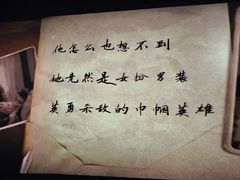 他怎么也想不到
她竟然是女扮男装
英勇杀敌的巾帼英雄